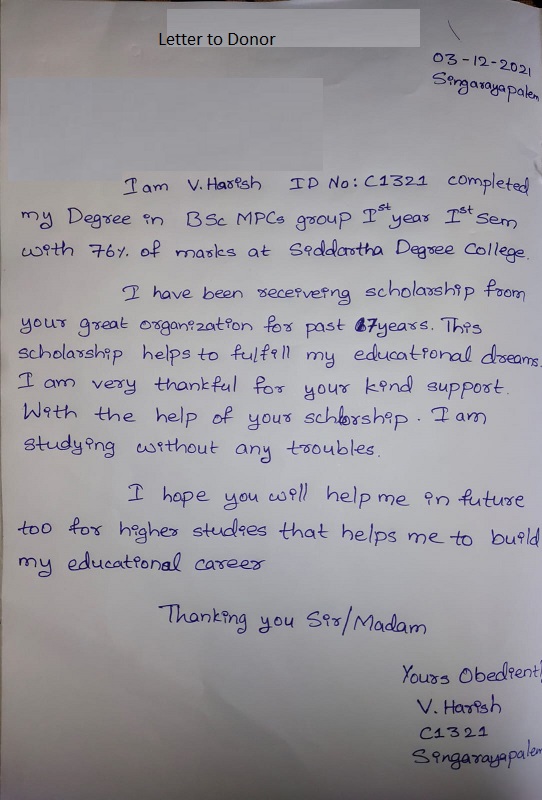 Letter to Donor
03-12-2021
Singarayapalem
I am V. Harish ID No: C1321 completed
my Degree in BSc MPCs group Ist year Ist Sem
with 76% of marks at Siddartha Degree College.
I have been receiveing scholarship from
your great organization for past 7years. This
scholarship helps to fulfill my educational dreams.
I am very thankful for your kind support.
With the help of your schlorship. I am
studying without any troubles.
I hope you will help me in future
too for higher studies that helps me to build
my educational career
Thanking you Sir/Madam
Yours Obedient
V. Harish
C1321
Singarayapalem